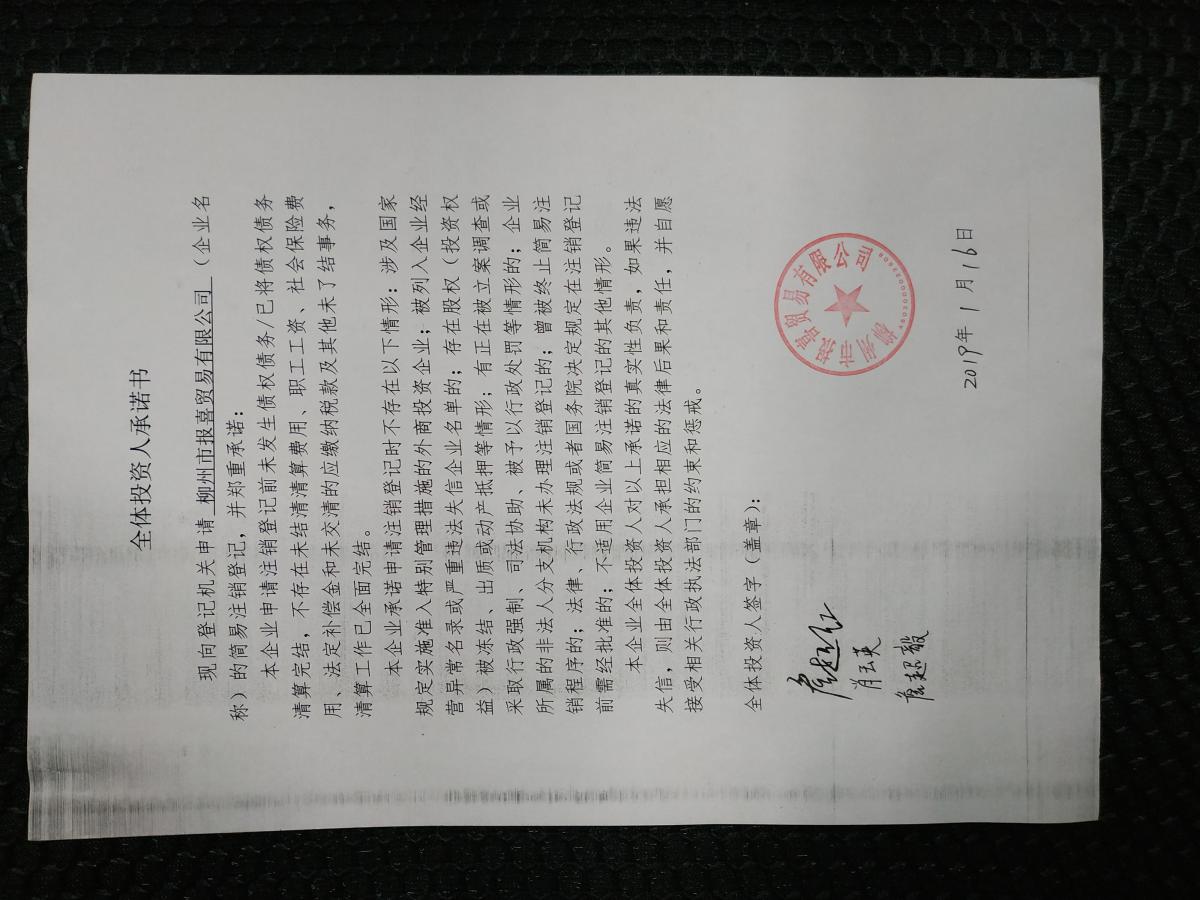 全体投资人承诺书
现向登记机关申请 柳州市报喜贸易有限公司 （企业名
称）的简易注销登记，并郑重承诺：
本企业申请注销登记前未发生债权债务/已将债权债务
清算完结，不存在未结清清算费用、职工工资、社会保险费
用、法定补偿金和未交清的应缴纳税款及其他未了结事务，
清算工作已全面完结。
本企业承诺申请注销登记时不存在以下情形：涉及国家
规定实施准入特别管理措施的外商投资企业；被列入企业经
营异常名录或严重违法失信企业名单的；存在股权（投资权
益）被冻结、出质或动产抵押等情形；有正在被立案调查或
采取行政强制、司法协助、被予以行政处罚等情形的；企业
所属的非法人分支机构未办理注销登记的；曾被终止简易注
销程序的；法律、行政法规或者国务院决定规定在注销登记
前需经批准的；不适用企业简易注销登记的其他情形。
本企业全体投资人对以上承诺的真实性负责，如果违法
失信，则由全体投资人承担相应的法律后果和责任，并自愿
接受相关行政执法部门的约束和惩戒。
全体投资人签字（盖章）：
肖玉英
柳州市报喜贸易有限公司
2019年1月16日